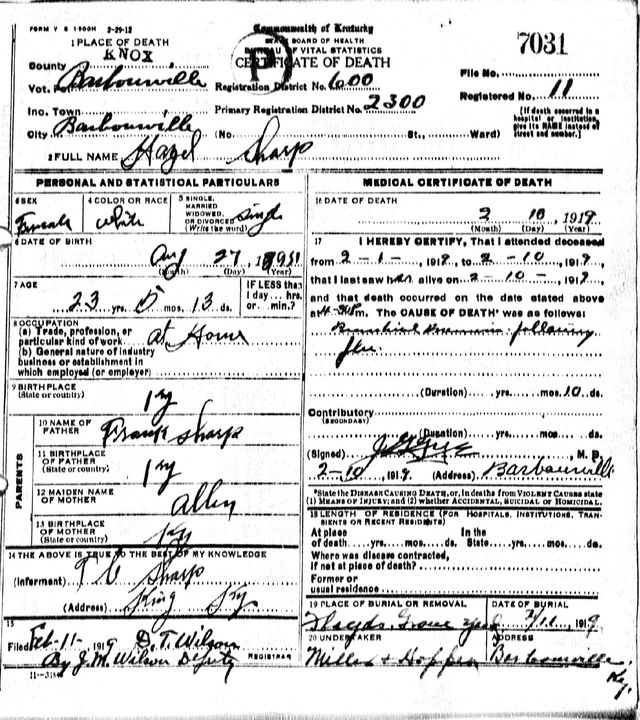 FORM V S 1-500M 2-29-12
Commonwealth of Kentucky
STATE BOARD OF HEALTH
BUREAU OF VITAL STATISTICS
CERTIFICATE OF DEATH
P
7031
1 PLACE OF DEATH
County KNOX
Vot. Barbourville
Registration District No. 600
File No.
Inc. Town
Primary Registration District No. 2300
Registered No. 11
City Barbourville (No. St., Ward)
[If death occurred in a hospital or institution, give its NAME instead of street and number.]
2 FULL NAME Hazel Sharp
PERSONAL AND STATISTICAL PARTICULARS
3 SEX Female
4 COLOR OR RACE White
5 SINGLE, MARRIED WIDOWED, OR DIVORCED (Write the word) Single
6 DATE OF BIRTH
Aug 27, 1895
(Month) (Day) (Year)
7 AGE
23 yrs. 5 mos. 13 ds.
IF LESS than 1 day... hrs. or... min.?
8 OCCUPATION
(a) Trade, profession, or particular kind of work at Home
(b) General nature of industry business or establishment in which employed (or employer)
9 BIRTHPLACE
(State or country) Ky
PARENTS
10 NAME OF FATHER Frank Sharp
11 BIRTHPLACE OF FATHER
(State or country) Ky
12 MAIDEN NAME OF MOTHER Allen
13 BIRTHPLACE OF MOTHER
(State or country) Ky
14 THE ABOVE IS TRUE TO THE BEST OF MY KNOWLEDGE
(Informant) T C Sharp
(Address) King Ky
15
Filed Feb-11- 1919 D. T. Wilson
By J. M. Wilson Deputy REGISTRAR
MEDICAL CERTIFICATE OF DEATH
16 DATE OF DEATH
2 10, 1919
(Month) (Day) (Year)
17 I HEREBY CERTIFY, That I attended deceased
from 2-1-, 1919, to 2-10-, 1919,
that I last saw her alive on 2-10-, 1919
and that death occurred on the date stated above
at 4-30P m. The CAUSE OF DEATH* was as follows:
following
flu.
(Duration) yrs. mos. 10 ds.
Contributory
(SECONDARY)
(Duration) yrs. mos. ds.
(Signed) , M. D.
2-10, 1919. (Address) Barbourville
*State the DISEASE CAUSING DEATH, or, in deaths from VIOLENT CAUSES state (1) MEANS OF INJURY; and (2) whether ACCIDENTAL, SUICIDAL or HOMICIDAL.
18 LENGTH OF RESIDENCE (FOR HOSPITALS, INSTITUTIONS, TRANSIENTS OR RECENT RESIDENTS)
At place of death yrs. mos. ds. In the State yrs. mos. ds.
Where was disease contracted, if not at place of death?
Former or usual residence
19 PLACE OF BURIAL OR REMOVAL
DATE OF BURIAL
Grave Yard 2/11, 1919
20 UNDERTAKER
ADDRESS
Miller & Hopper Barbourville, Ky.